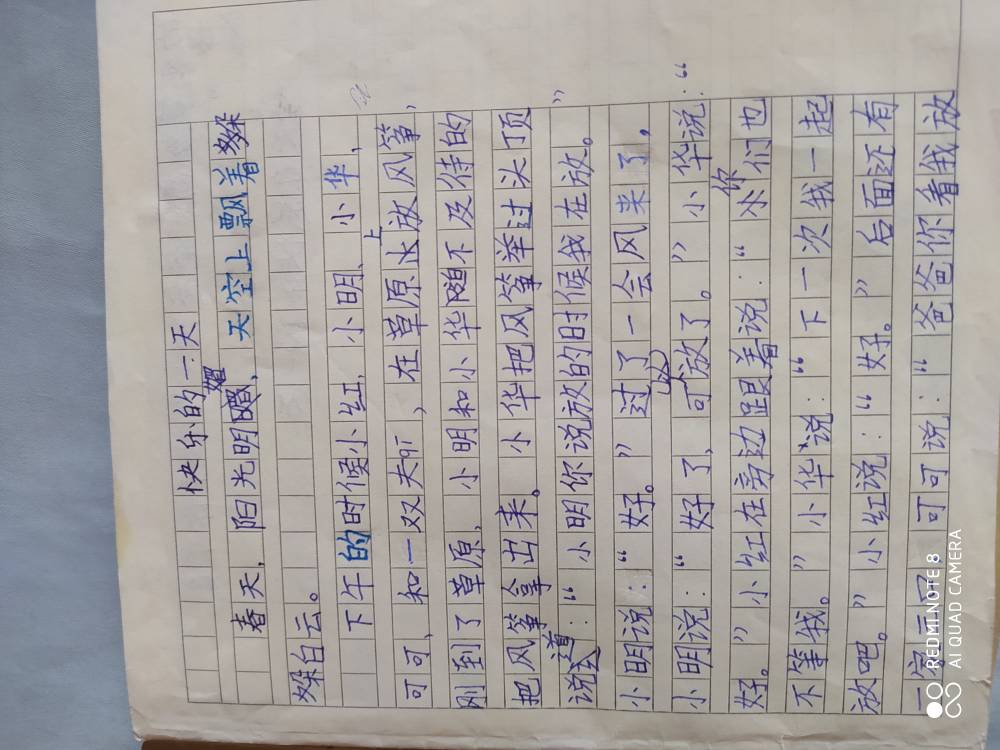 快乐的一天
春天，阳光明媚，天空上飘着朵
朵白云。
下午的时候小红，小明、小华，
可可，和一双夫qī，在草原上放风筝，
刚到了草原，小明和小华随不及待的
把风筝拿出来。小华把风筝举过头顶
说道：“小明你说放的时候我在放。”
小明说：“好。”过了一会风来了，
小明说：“好了，可以放了。”小华说：“
好。”小红在旁边跟着说：“你们也
不等我。”小华说：“下一次我一起
放吧。”小红说：“好。”后面还有
一家三口。可可说：“爸爸你看我放
REDMI NOTE 8
AI QUAD CAMERA